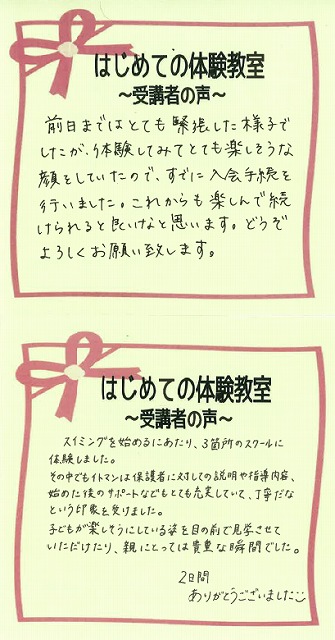 はじめての体験教室
～受講者の声～
前日まではとても緊張した様子で
したが、体験してみてとても楽しそうな
顔をしていたので、すぐに入会手続を
行いました。これからも楽しんで続
けられると良いなと思います。どうぞ
よろしくお願い致します。
はじめての体験教室
～受講者の声～
スイミングを始めるにあたり、3箇所のスクールに
体験しました。
その中でもイトマンは保護者に対しての説明や指導内容、
始めた後のサポートなどもとても充実していて、丁寧だな
という印象を受けました。
子どもが楽しそうにしている姿を目の前で見学させて
いただけたり、親にとっては貴重な瞬間でした。
2日間
ありがとうございました